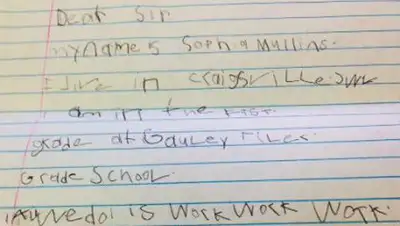 Dear Sir
my name s Soph a Mullins.
I live in craigsville. WV
am in the first
grade at Gauley River
Grade School.
All we do is Work Work Work.